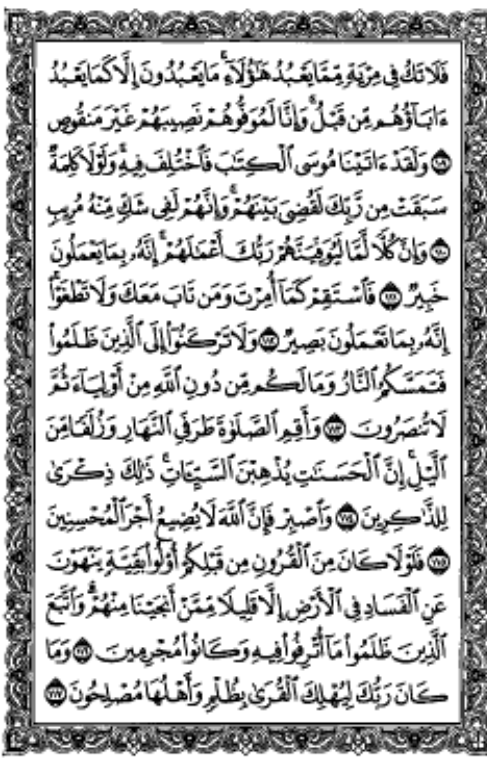 فَلَا تَكُ فِى مِرْيَةٍ مِّمَّا يَعْبُدُ هَٰٓؤُلَآءِ ۚ مَا يَعْبُدُونَ إِلَّا كَمَا يَعْبُدُ
ءَابَآؤُهُم مِّن قَبْلُ ۚ وَإِنَّا لَمُوَفُّوهُمْ نَصِيبَهُمْ غَيْرَ مَنقُوصٍ
۝١٠٩ وَلَقَدْ ءَاتَيْنَا مُوسَى ٱلْكِتَٰبَ فَٱخْتُلِفَ فِيهِ ۚ وَلَوْلَا كَلِمَةٌ
سَبَقَتْ مِن رَّبِّكَ لَقُضِىَ بَيْنَهُمْ ۚ وَإِنَّهُمْ لَفِى شَكٍّ مِّنْهُ مُرِيبٍ
۝١١٠ وَإِنَّ كُلًّا لَّمَّا لَيُوَفِّيَنَّهُمْ رَبُّكَ أَعْمَٰلَهُمْ ۚ إِنَّهُۥ بِمَا يَعْمَلُونَ
خَبِيرٌ ۝١١١ فَٱسْتَقِمْ كَمَآ أُمِرْتَ وَمَن تَابَ مَعَكَ وَلَا تَطْغَوْا۟ ۚ
إِنَّهُۥ بِمَا تَعْمَلُونَ بَصِيرٌ ۝١١٢ وَلَا تَرْكَنُوٓا۟ إِلَى ٱلَّذِينَ ظَلَمُوا۟
فَتَمَسَّكُمُ ٱلنَّارُ وَمَا لَكُم مِّن دُونِ ٱللَّهِ مِنْ أَوْلِيَآءَ ثُمَّ
لَا تُنصَرُونَ ۝١١٣ وَأَقِمِ ٱلصَّلَوٰةَ طَرَفَىِ ٱلنَّهَارِ وَزُلَفًا مِّنَ
ٱلَّيْلِ ۚ إِنَّ ٱلْحَسَنَٰتِ يُذْهِبْنَ ٱلسَّيِّـَٔاتِ ۚ ذَٰلِكَ ذِكْرَىٰ
لِلذَّٰكِرِينَ ۝١١٤ وَٱصْبِرْ فَإِنَّ ٱللَّهَ لَا يُضِيعُ أَجْرَ ٱلْمُحْسِنِينَ
۝١١٥ فَلَوْلَا كَانَ مِنَ ٱلْقُرُونِ مِن قَبْلِكُمْ أُو۟لُوا۟ بَقِيَّةٍ يَنْهَوْنَ
عَنِ ٱلْفَسَادِ فِى ٱلْأَرْضِ إِلَّا قَلِيلًا مِّمَّنْ أَنجَيْنَا مِنْهُمْ ۗ وَٱتَّبَعَ
ٱلَّذِينَ ظَلَمُوا۟ مَآ أُتْرِفُوا۟ فِيهِ وَكَانُوا۟ مُجْرِمِينَ ۝١١٦ وَمَا
كَانَ رَبُّكَ لِيُهْلِكَ ٱلْقُرَىٰ بِظُلْمٍ وَأَهْلُهَا مُصْلِحُونَ ۝١١٧